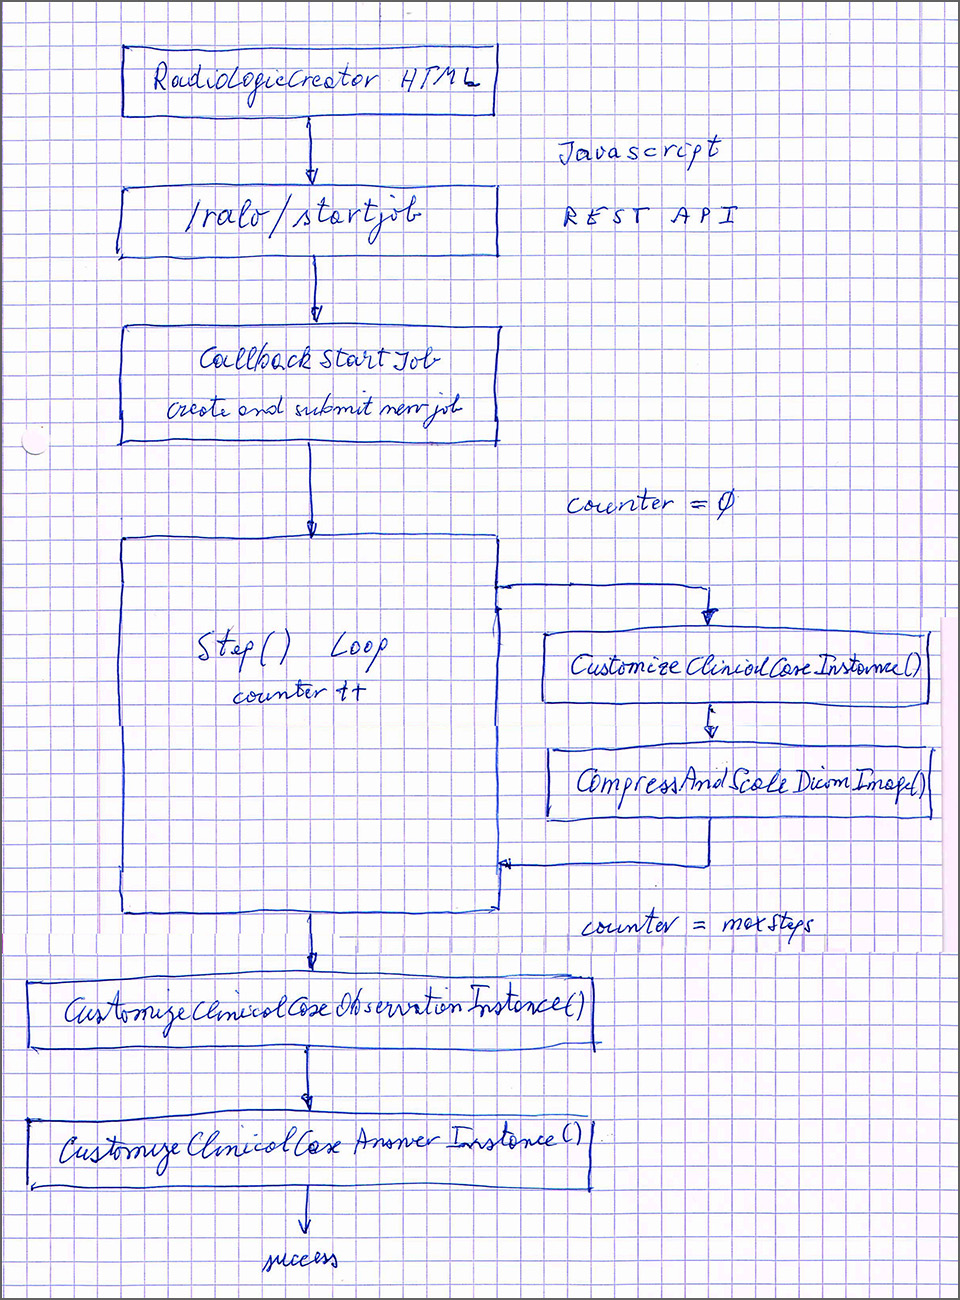 RadioLogicCreator HTML
Javascript
/ralo/startjob
REST API
Callback Start Job
create and submit new job
counter = 0
Step() Loop
counter ++
CustomizeClinicalCaseInstance()
CompressAndScaleDicomImage()
counter = maxSteps
CustomizeClinicalCaseObservationInstance()
CustomizeClinicalCase Answer Instance()
success